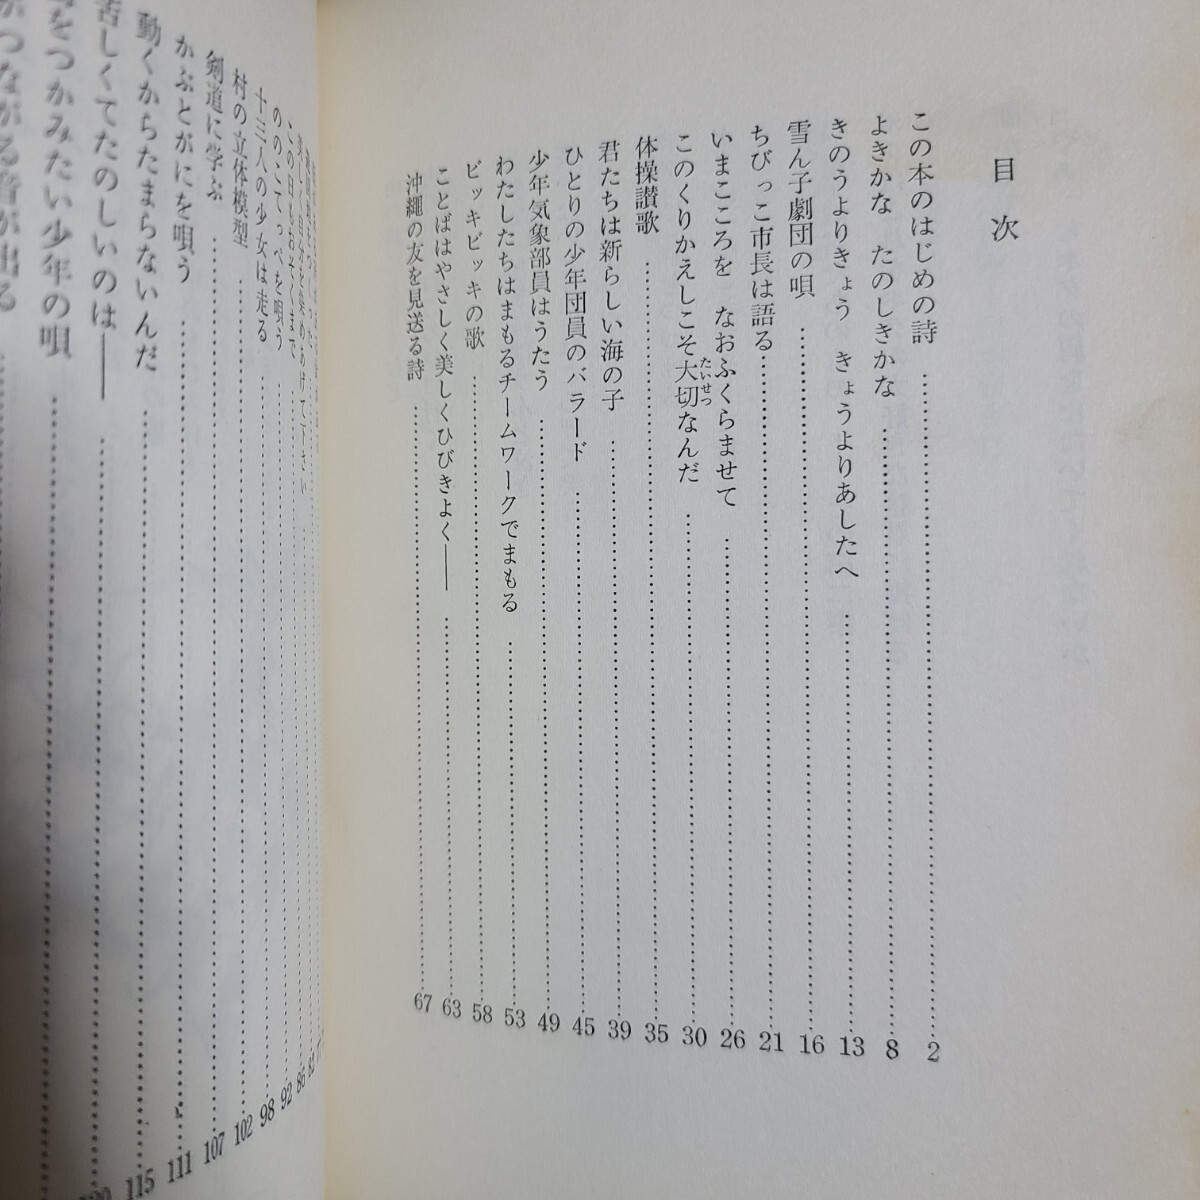 目次
この本のはじめの詩……2
よきかな　たのしきかな……8
きのうよりきょう　きょうよりあしたへ……13
雪ん子劇団の唄……16
ちびっこ市長は語る……21
いまこころを　なおふくらませて……26
このくりかえしこそ大切なんだ……30
たいせつ
体操讃歌……35
君たちは新らしい海の子……39
ひとりの少年団員のバラード……45
少年気象部員はうたう……49
わたしたちはまもるチームワークでまもる……53
ビッキビッキの歌……58
ことばはやさしく美しくひびきよく――……63
沖縄の友を見送る詩……67
美しく自分を染めあげて下さい……82
この日もおそくまで……86
ののこてっぺを唄う……92
十三人の少女は走る……98
村の立体模型……102
剣道に学ぶ……107
かぶとがにを唄う……111
動くからたまらないんだ……115
苦しくてたのしいのは――……120
をつかみたい少年の唄……
つながる音が出る……